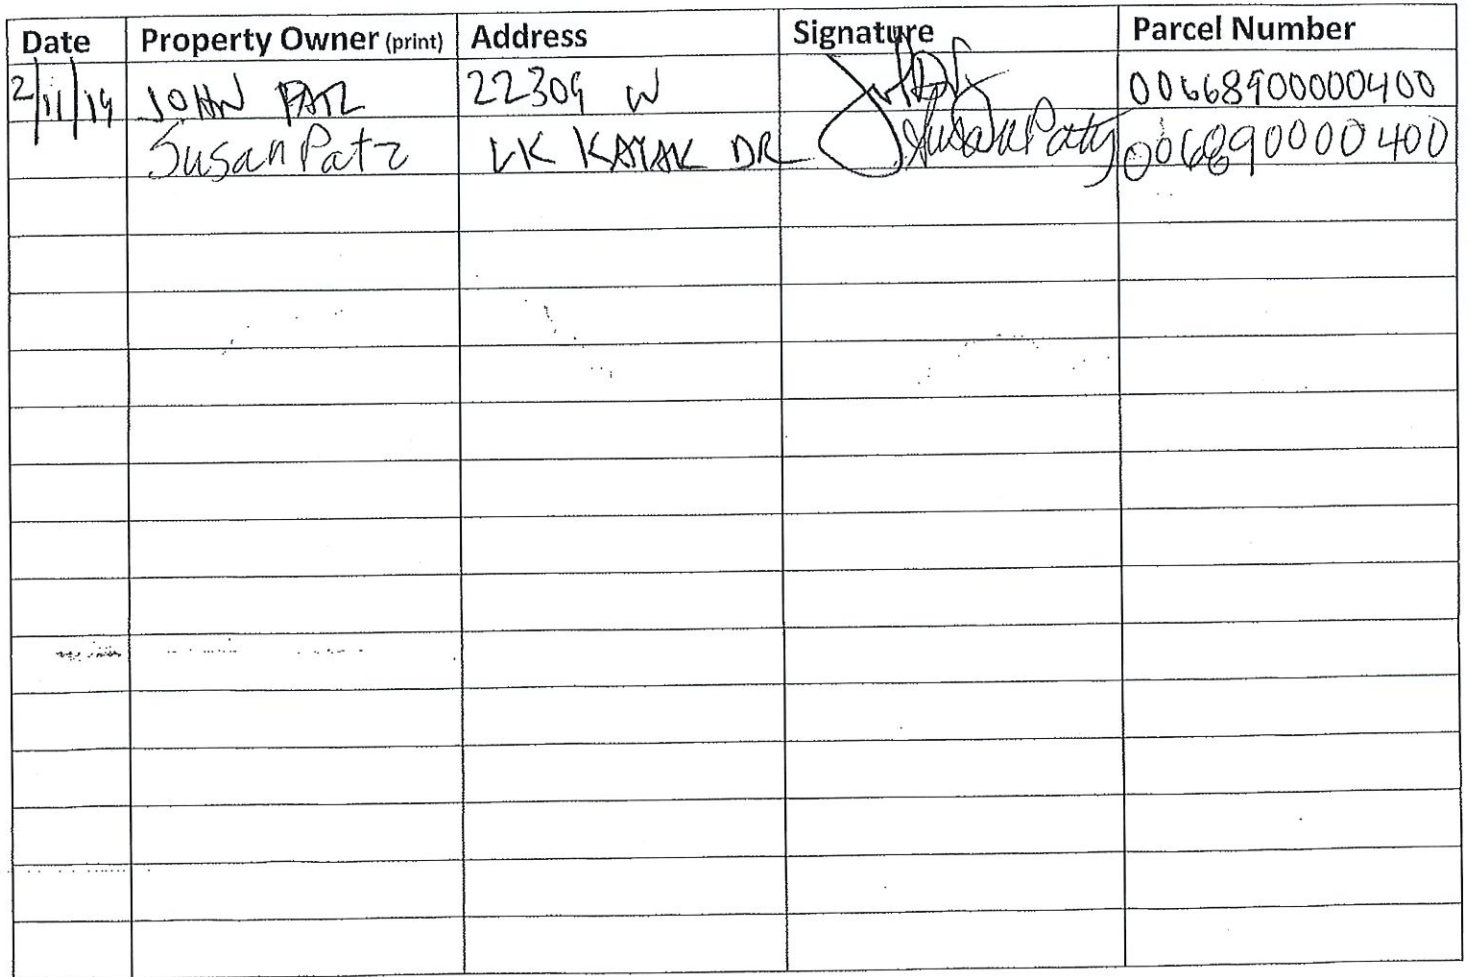 Date Property Owner (print) Address Signature Parcel Number
2/11/19 JOHN PATZ 22309 W 00668900000400
Susan Patz LK KAYAK DR Susan Patz 006890000400